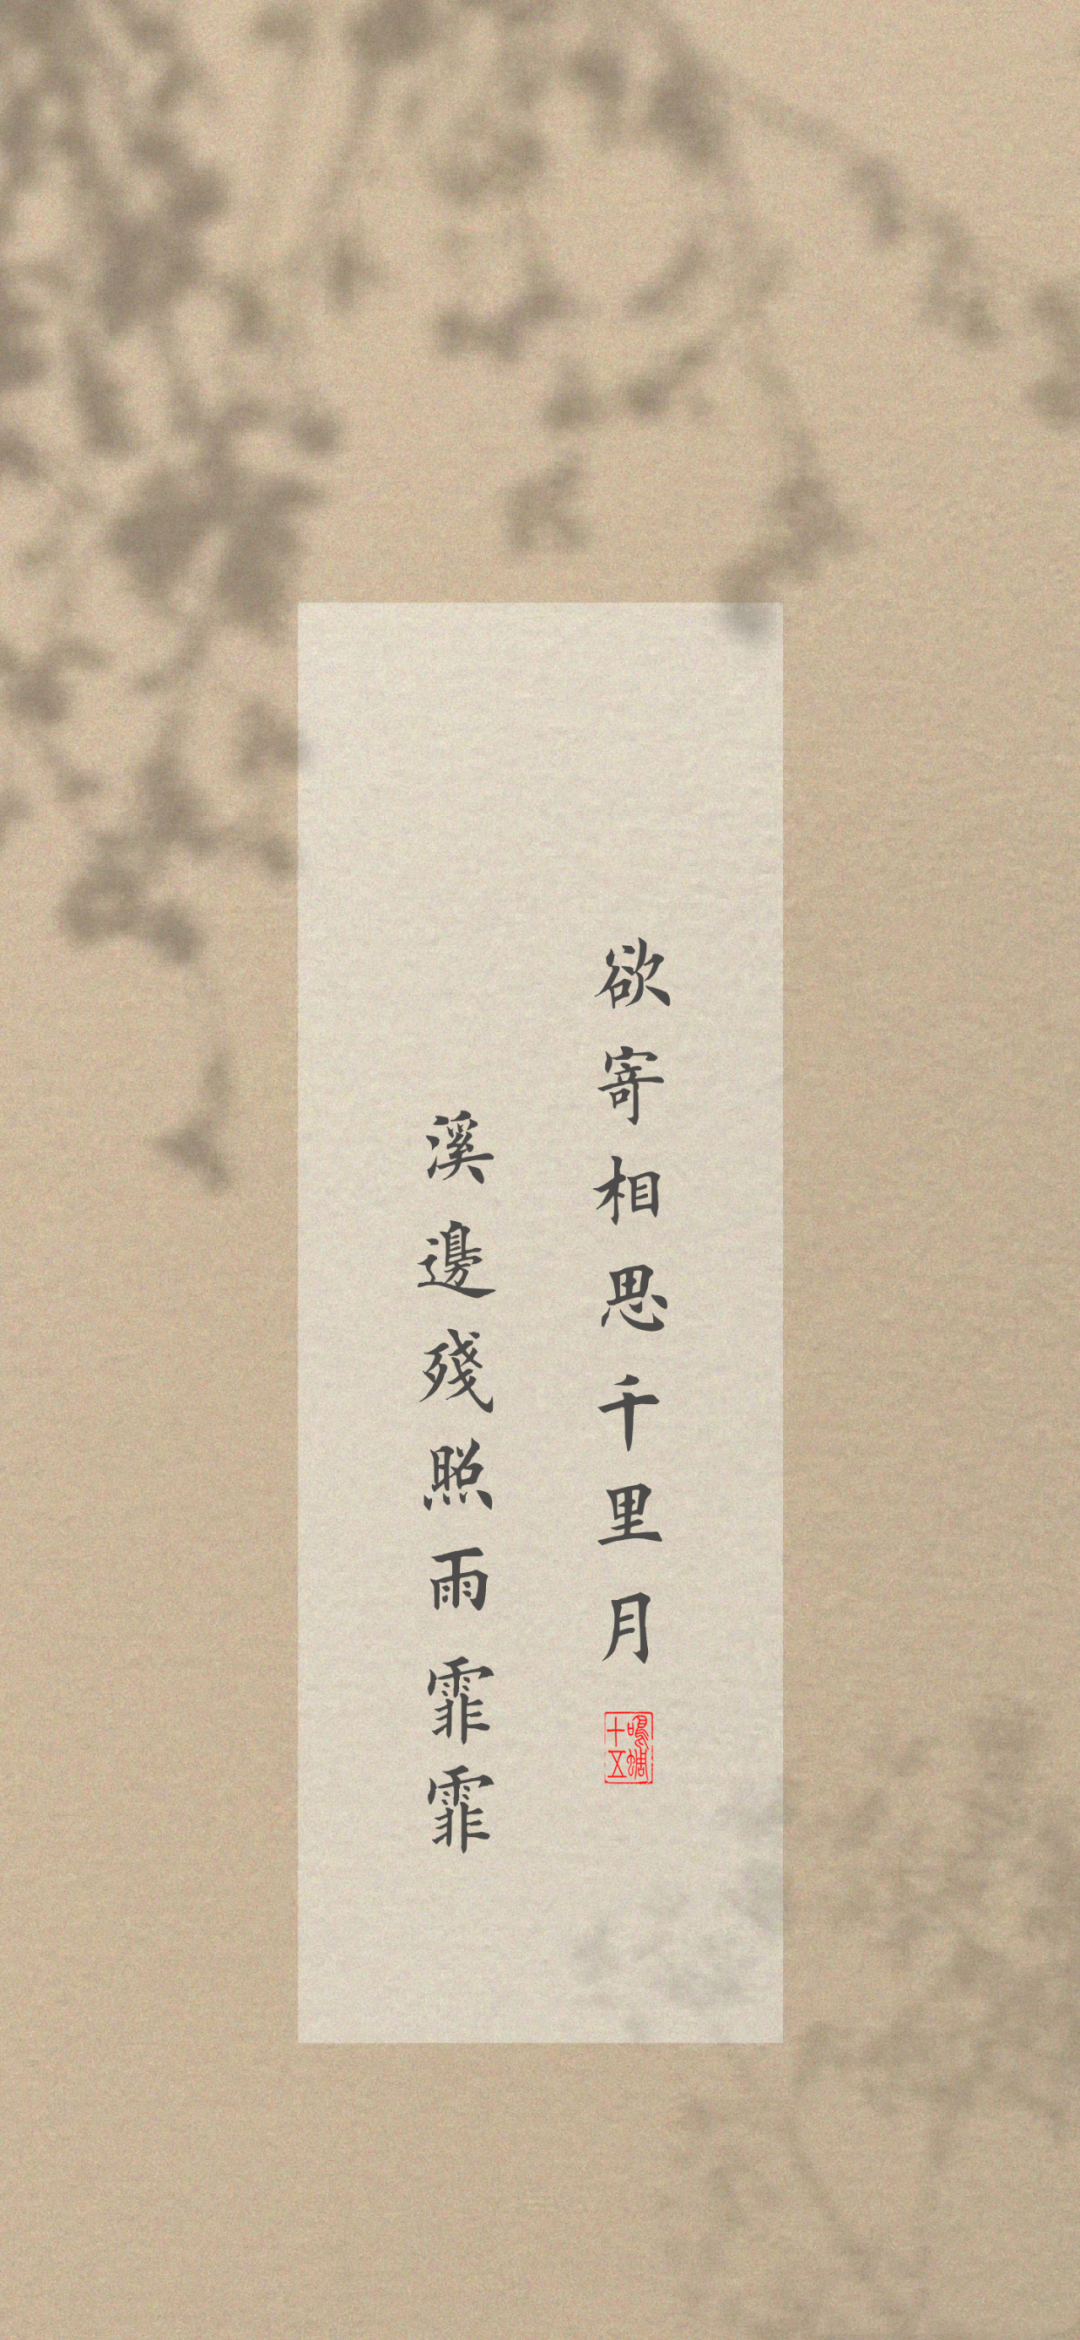 欲寄相思千里月
溪邊殘照雨霏霏
十五